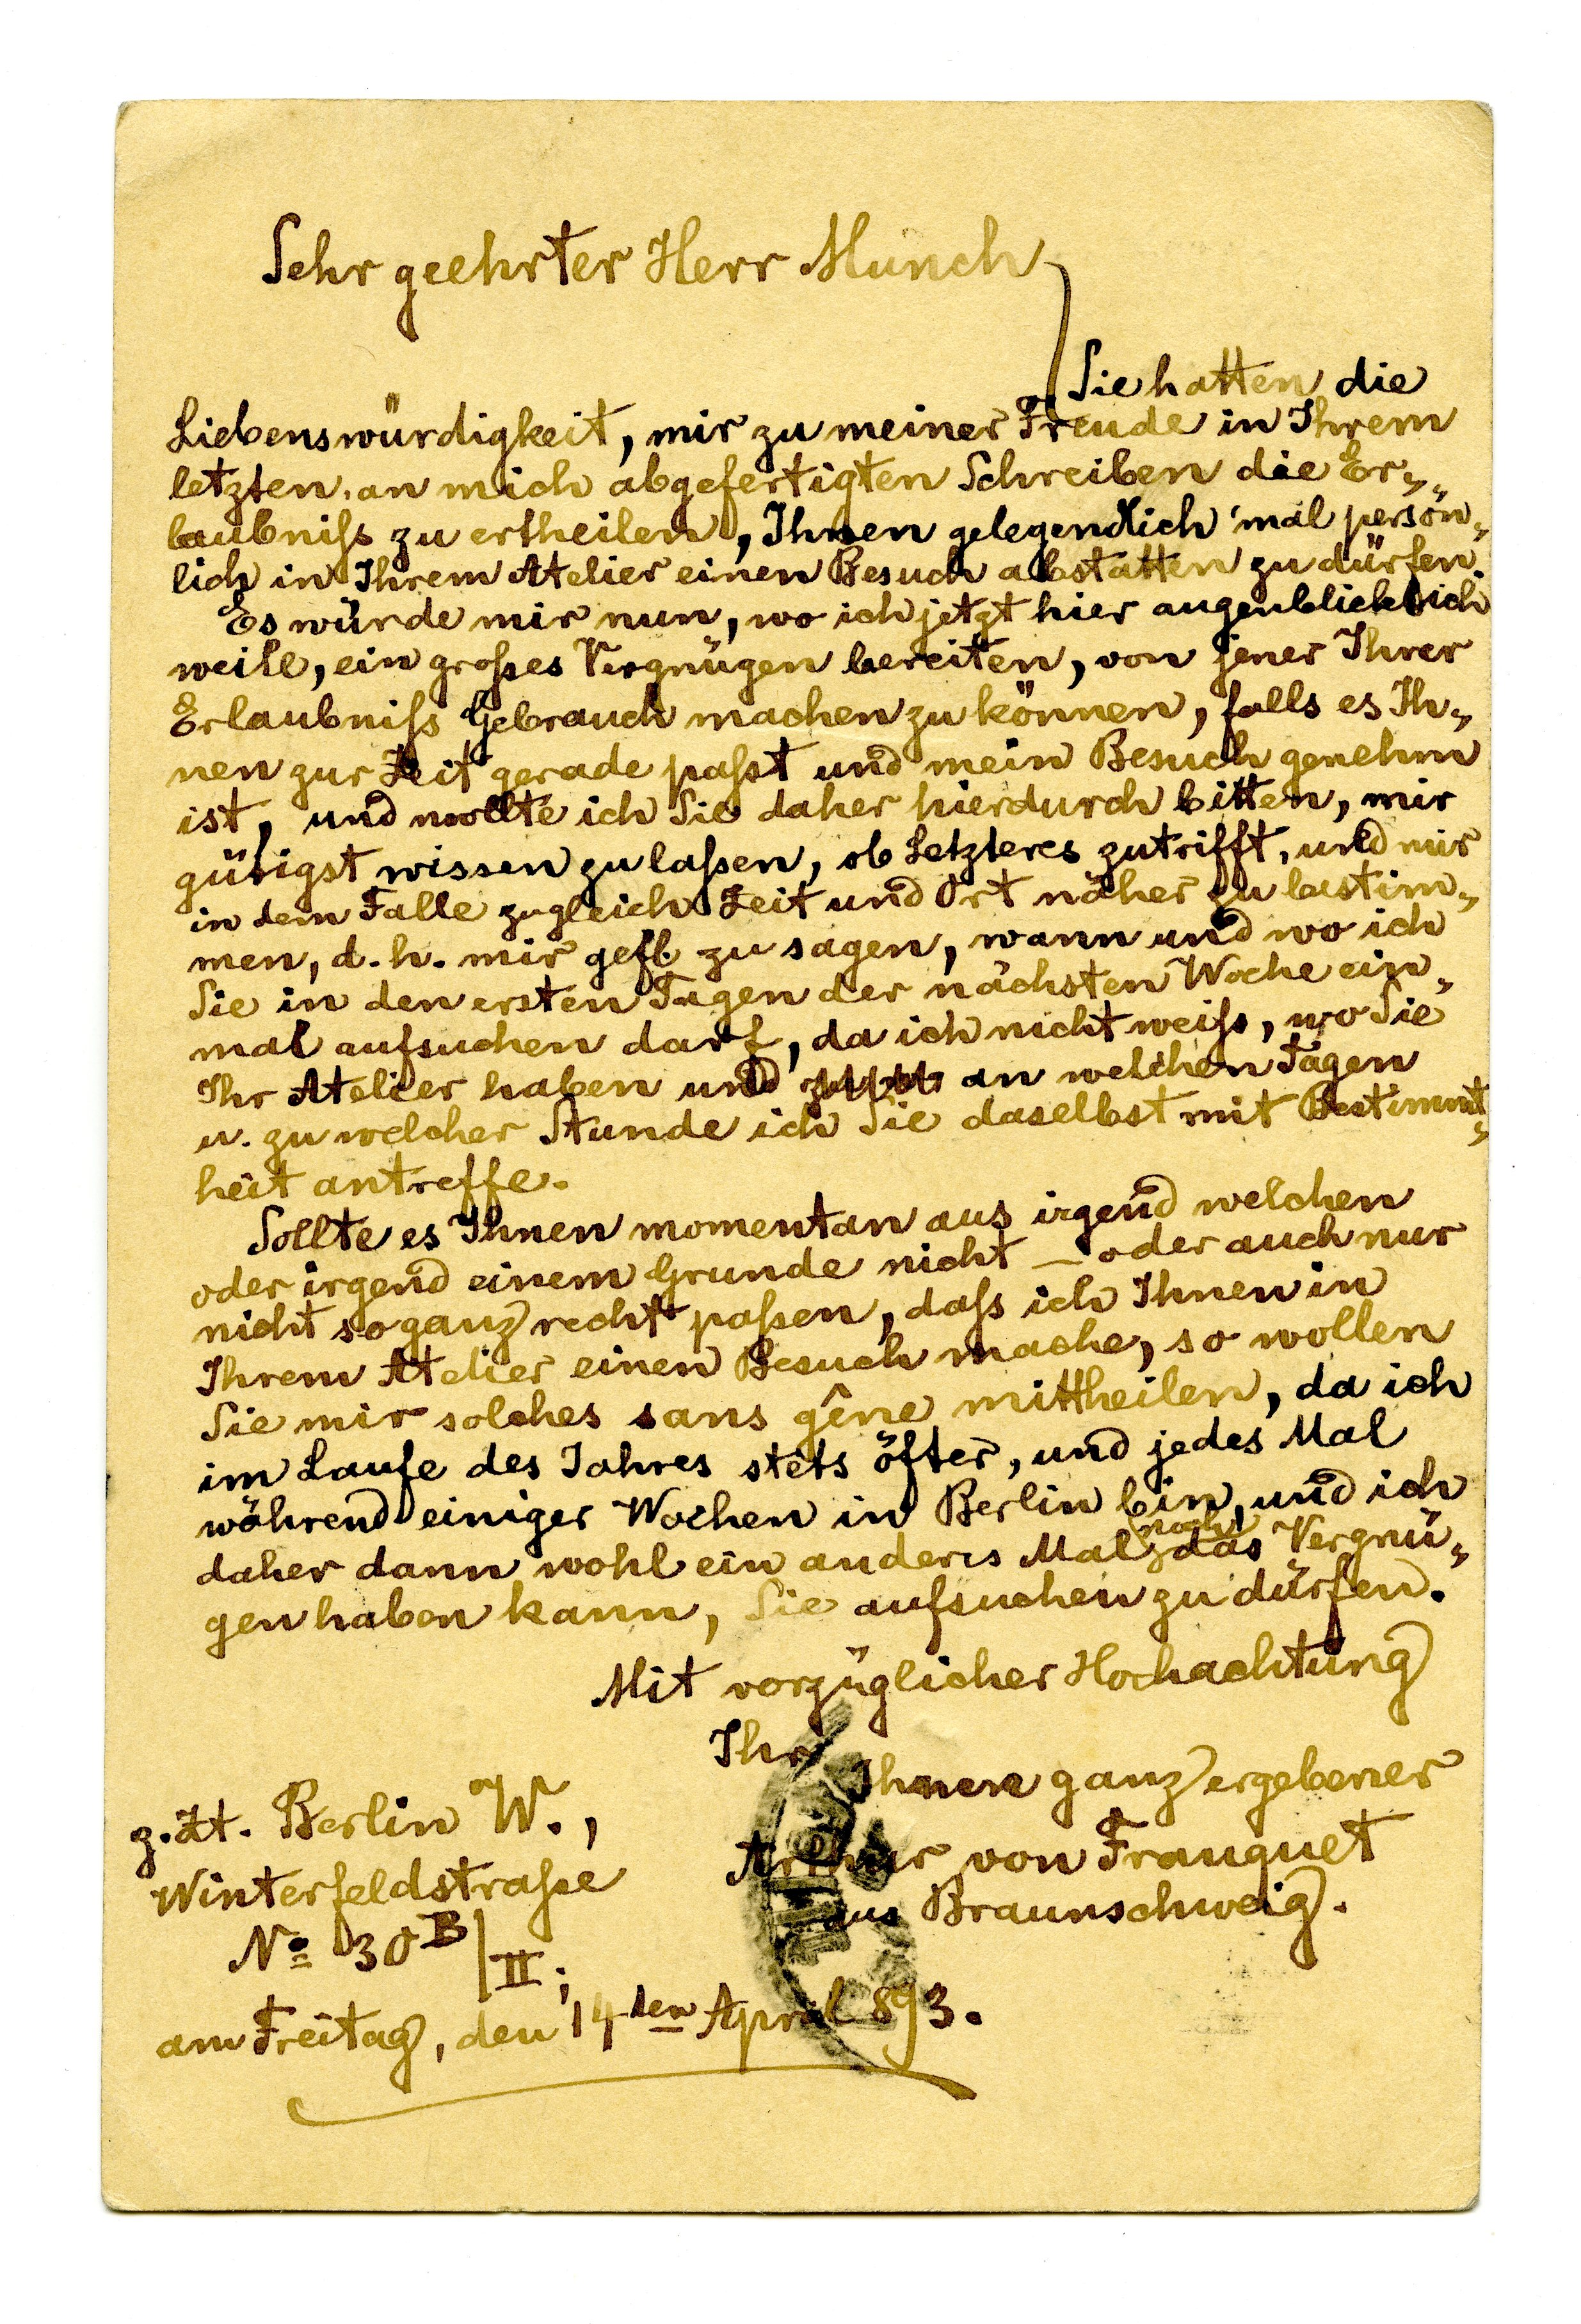 Sehr geehrter Herr Munch,
Sie hatten die
Liebenswürdigkeit, mir zu meiner Freude in Ihrem
letzten an mich abgefertigten Schreiben die Er„
laubniß zu ertheilen, Ihnen gelegendlich 'mal persön„
lich in Ihrem Atelier einen Besuch abstatten zu dürfen.
Es würde mir nun, wo ich jetzt hier augenblicklich
weile, ein großes Vergnügen bereiten, von jener Ihrer
Erlaubniß Gebrauch machen zu können, falls es Ih„
nen zur Zeit gerade paßt und mein Besuch genehm
ist, und wollte ich Sie daher hierdurch bitten, mir
gütigst wissen zu laßen, ob Letzteres zutrifft, und mir
in dem Falle zugleich Zeit und Ort näher zu bestim„
men, d. h. mir gefl. zu sagen, wann und wo ich
Sie in den ersten Tagen der nächsten Woche ein„
mal aufsuchen darf, da ich nicht weiß, wo Sie
Ihr Atelier haben und an welchen Tagen
u. zu welcher Stunde ich Sie daselbst mit Bestimmt„
heit antreffe.
Sollte es Ihnen momentan aus irgend welchen
oder irgend einem Grunde nicht – oder auch nur
nicht so ganz recht paßen, daß ich Ihnen in
Ihrem Atelier einen Besuch mache, so wollen
Sie mir solches sans gêne mittheilen, da ich
im Laufe des Jahres stets öfter, und jedes Mal
während einiger Wochen in Berlin bin, und ich
daher dann wohl ein anderes Mal noch das Vergnü„
gen haben kann, Sie aufsuchen zu dürfen.
Mit vorzüglicher Hochachtung
Ihr
Ihnen ganz ergebener
Arthur von Franquet
aus Braunschweig.
z. Zt. Berlin W.,
Winterfeldstraße
No 30B/II;
am Freitag, den 14ten April 893.